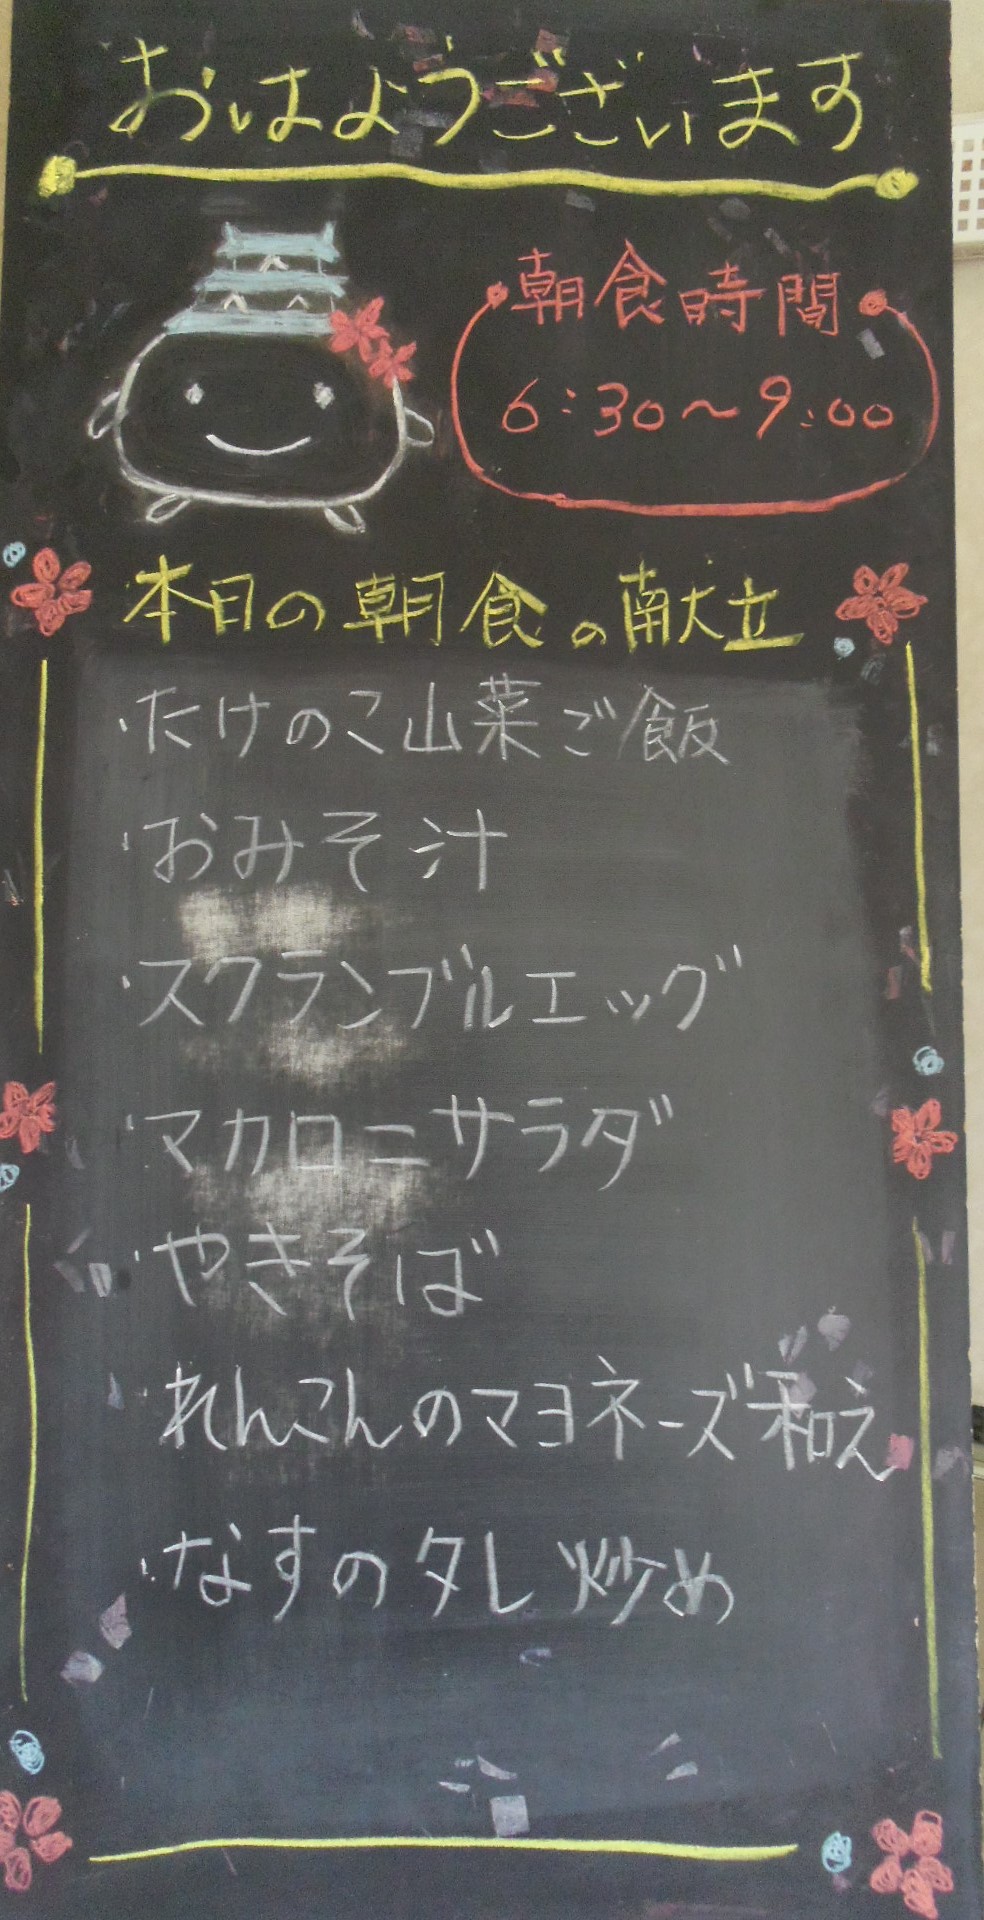 おはようございます
朝食時間
6:30～9:00
本日の朝食の献立
・たけのこ山菜ご飯
・おみそ汁
・スクランブルエッグ
・マカロニサラダ
・やきそば
・れんこんのマヨネーズ和え
・なすのタレ炒め